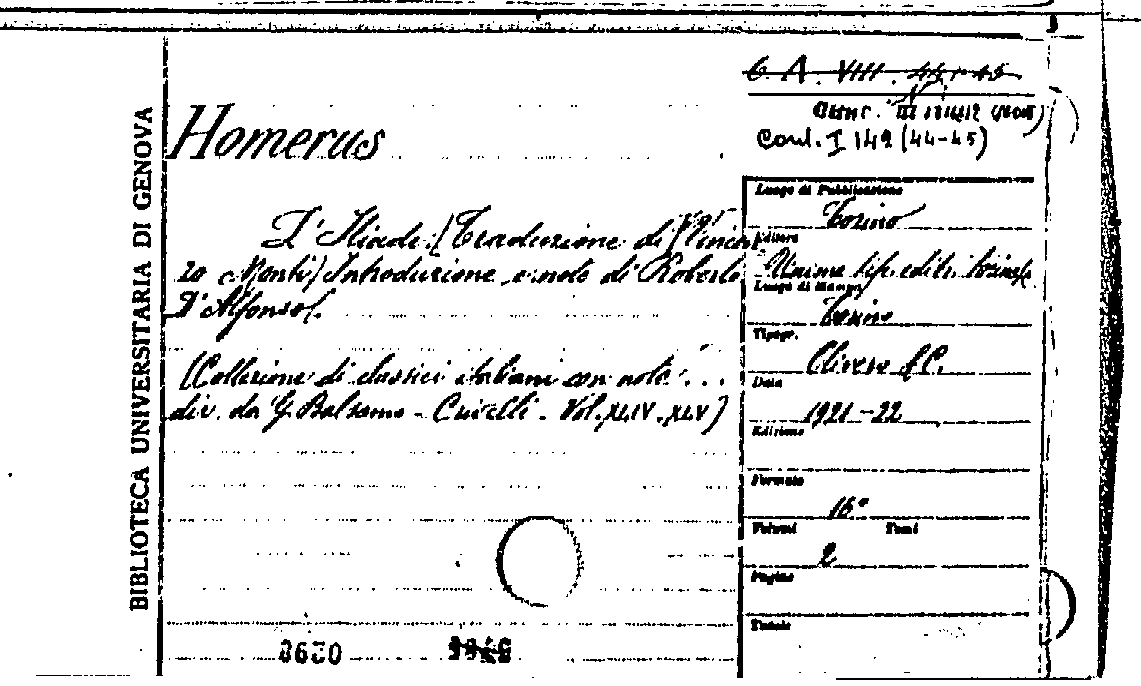 6. A. VIII. 44-45
Coul. I 149 (44-45)
BIBLIOTECA UNIVERSITARIA DI GENOVA
Homerus
L'Iliade. (Traduzione di Vincen
zo Monti) Introduzione e note di Roberto
D'Alfonso.
(Collezione di classici italiani con note ...
dir. da G. Balsamo-Crivelli. Vol. XLIV. XLV)
Luogo di Pubblicazione
Torino
Editore
Unione tip. edit. torinese
Luogo di stampa
Torino
Tipogr.
Olivero & C.
Data
1921-22
Edizione
Formato
16°
Volumi Tomi
2
Pagine
Tavole